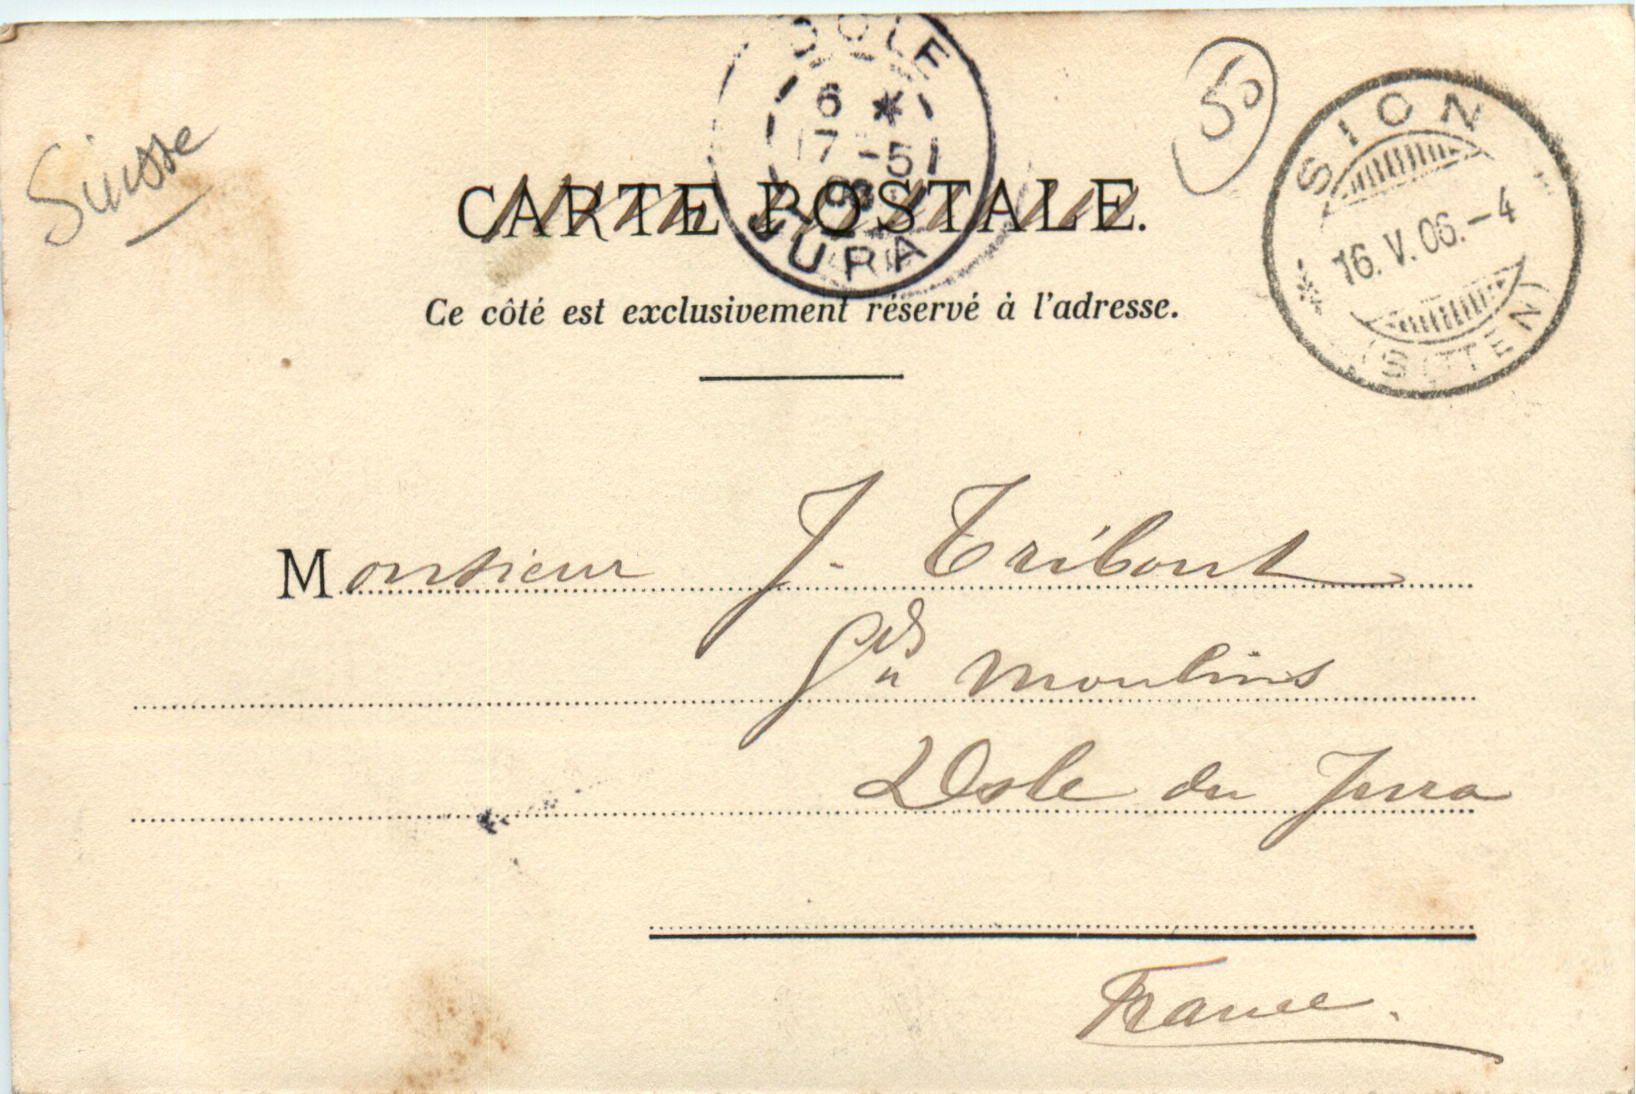 DOLE
6 *
17 -5
06
JURA
50
SION
16. V. 06. - 4
(SITTEN)
Suisse
CARTE POSTALE.
Ce côté est exclusivement réservé à l'adresse.
Monsieur J. Tribout
Gds Moulins
Dole du Jura
France.